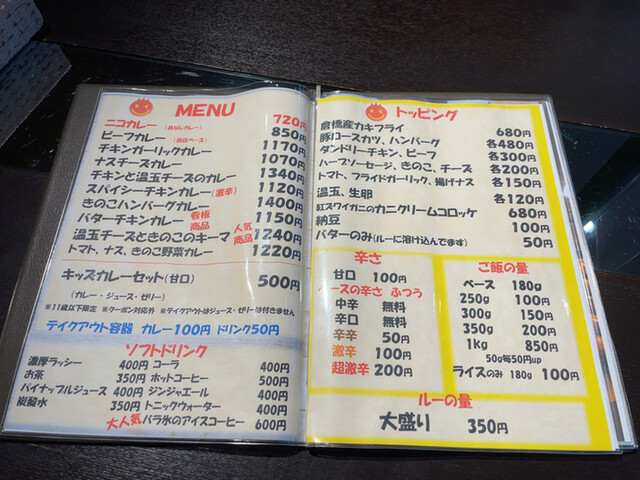 MENU
ニコカレー (具なしカレー) 720円
ビーフカレー (当店ベース) 850円
チキンガーリックカレー 1170円
ナスチーズカレー 1070円
チキンと温玉チーズのカレー 1340円
スパイシーチキンカレー(激辛) 1120円
きのこハンバーグカレー 1400円
バターチキンカレー 看板商品 1150円
温玉チーズときのこのキーマ 人気商品 1240円
トマト、ナス、きのこ野菜カレー 1220円
キッズカレーセット(甘口) 500円
(カレー・ジュース・ゼリー)
※11歳以下限定 ※クーポン対応外 ※テイクアウトはジュース・ゼリーは付きません
テイクアウト容器 カレー100円 ドリンク50円
ソフトドリンク
濃厚ラッシー 400円 コーラ 400円
お茶 350円 ホットコーヒー 500円
パイナップルジュース 400円 ジンジャエール 400円
炭酸水 350円 トニックウォーター 400円
大人気 バラ氷のアイスコーヒー 600円
トッピング
倉橋産カキフライ 680円
豚ロースカツ、ハンバーグ 各480円
タンドリーチキン、ビーフ 各300円
ハーブソーセージ、きのこ、チーズ 各200円
トマト、フライドガーリック、揚げナス 各150円
温玉、生卵 各120円
紅ズワイガニのカニクリームコロッケ 680円
納豆 100円
バターのみ(ルーに溶け込んでます) 50円
辛さ
甘口 100円
ベースの辛さ ふつう
中辛 無料
辛口 無料
辛辛 50円
激辛 100円
超激辛 200円
ご飯の量
ベース 180g
250g 100円
300g 150円
350g 200円
1kg 850円
50g毎50円up
ライスのみ 180g 100円
ルーの量
大盛り 350円